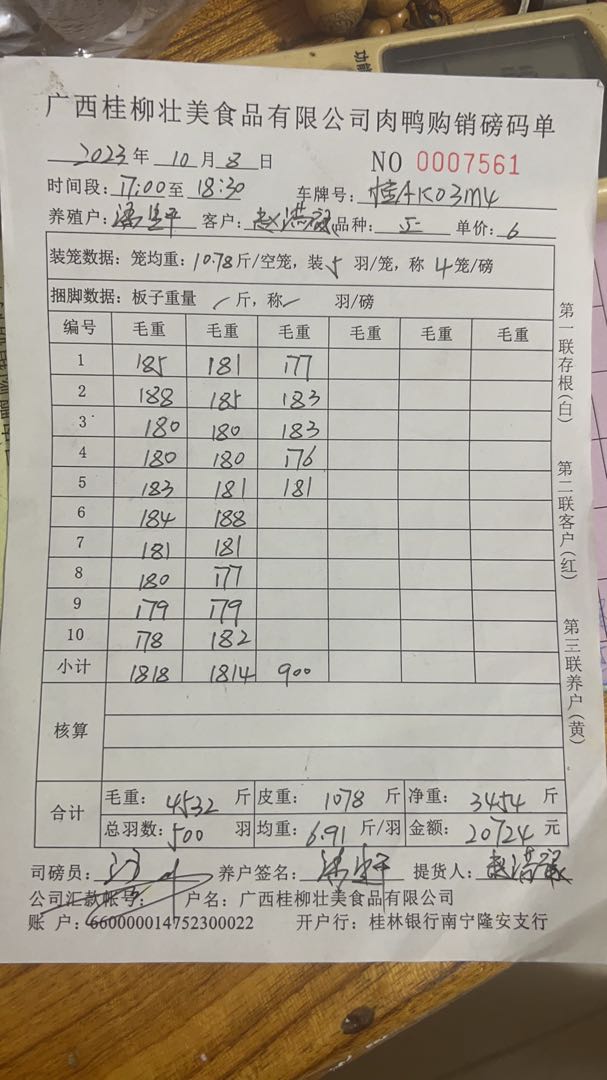 广西桂柳壮美食品有限公司肉鸭购销磅码单
2023年 10 月 8 日 NO 0007561
时间段: 17:00至 18:30 车牌号: 桂AK03M4
养殖户: 客户: 品种: 正 单价: 6
装笼数据: 笼均重: 10.78斤/空笼, 装 5 羽/笼, 称 4笼/磅
捆脚数据: 板子重量 / 斤, 称 / 羽/磅
编号 毛重 毛重 毛重 毛重 毛重 毛重
1 185 181 177
2 188 185 183
3 180 180 183
4 180 180 176
5 183 181 181
6 184 188
7 181 181
8 180 177
9 179 179
10 178 182
小计 1818 1814 900
核算
合计
毛重: 4532 斤 皮重: 1078 斤 净重: 3454 斤
总羽数: 500 羽 均重: 6.91 斤/羽 金额: 20724 元
司磅员: 养户签名: 提货人:
公司汇款帐号: 户名: 广西桂柳壮美食品有限公司
账 户: 660000014752300022 开户行: 桂林银行南宁隆安支行
第一联存根(白)
第二联客户(红)
第三联养户(黄)